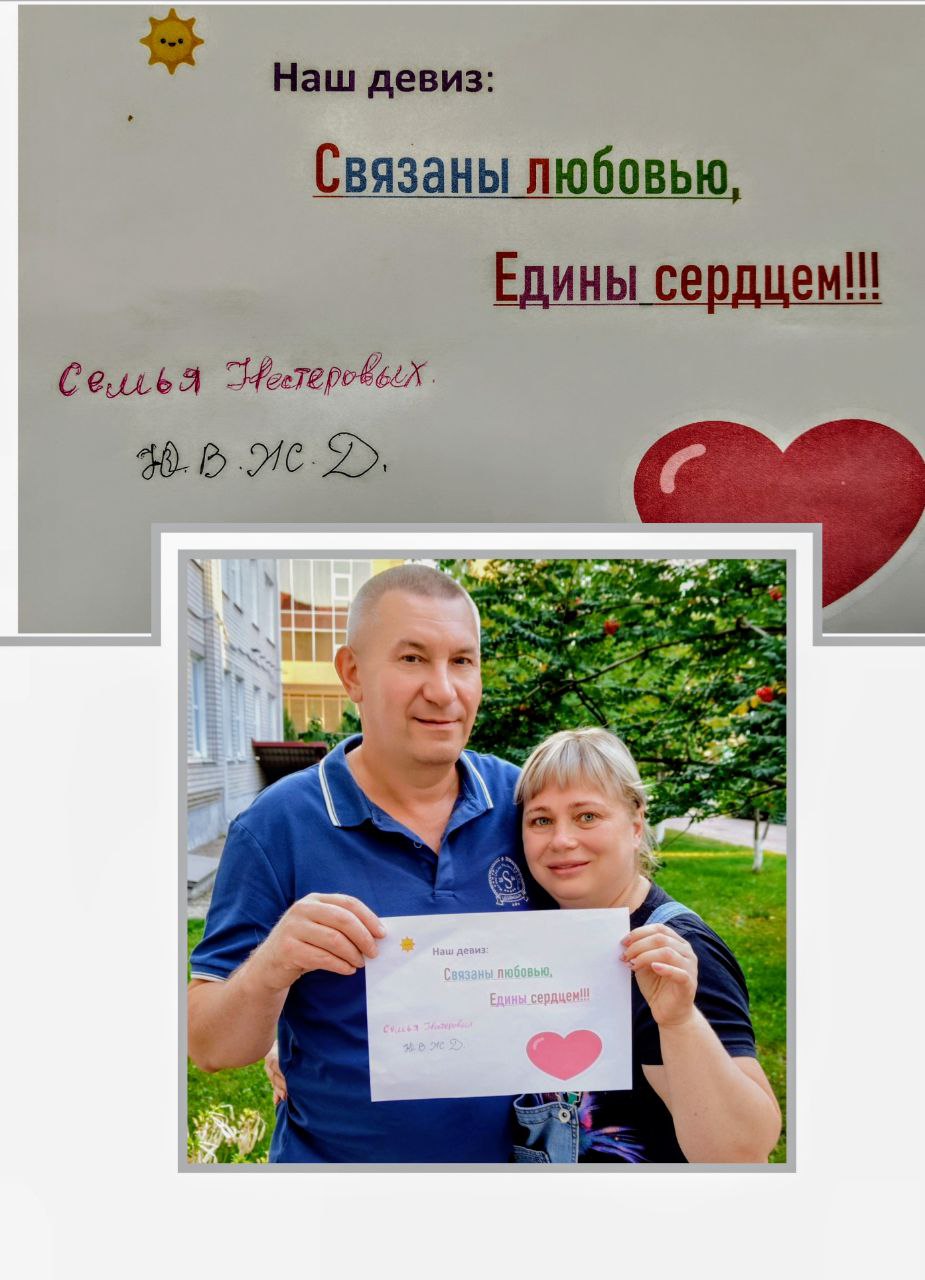 Наш девиз:
Связаны любовью,
Едины сердцем!!!
Семья Нестеровых.
Ю.В. Ж.С. Д.
Наш девиз:
Связаны любовью,
Едины сердцем!!!
Семья Нестеровых